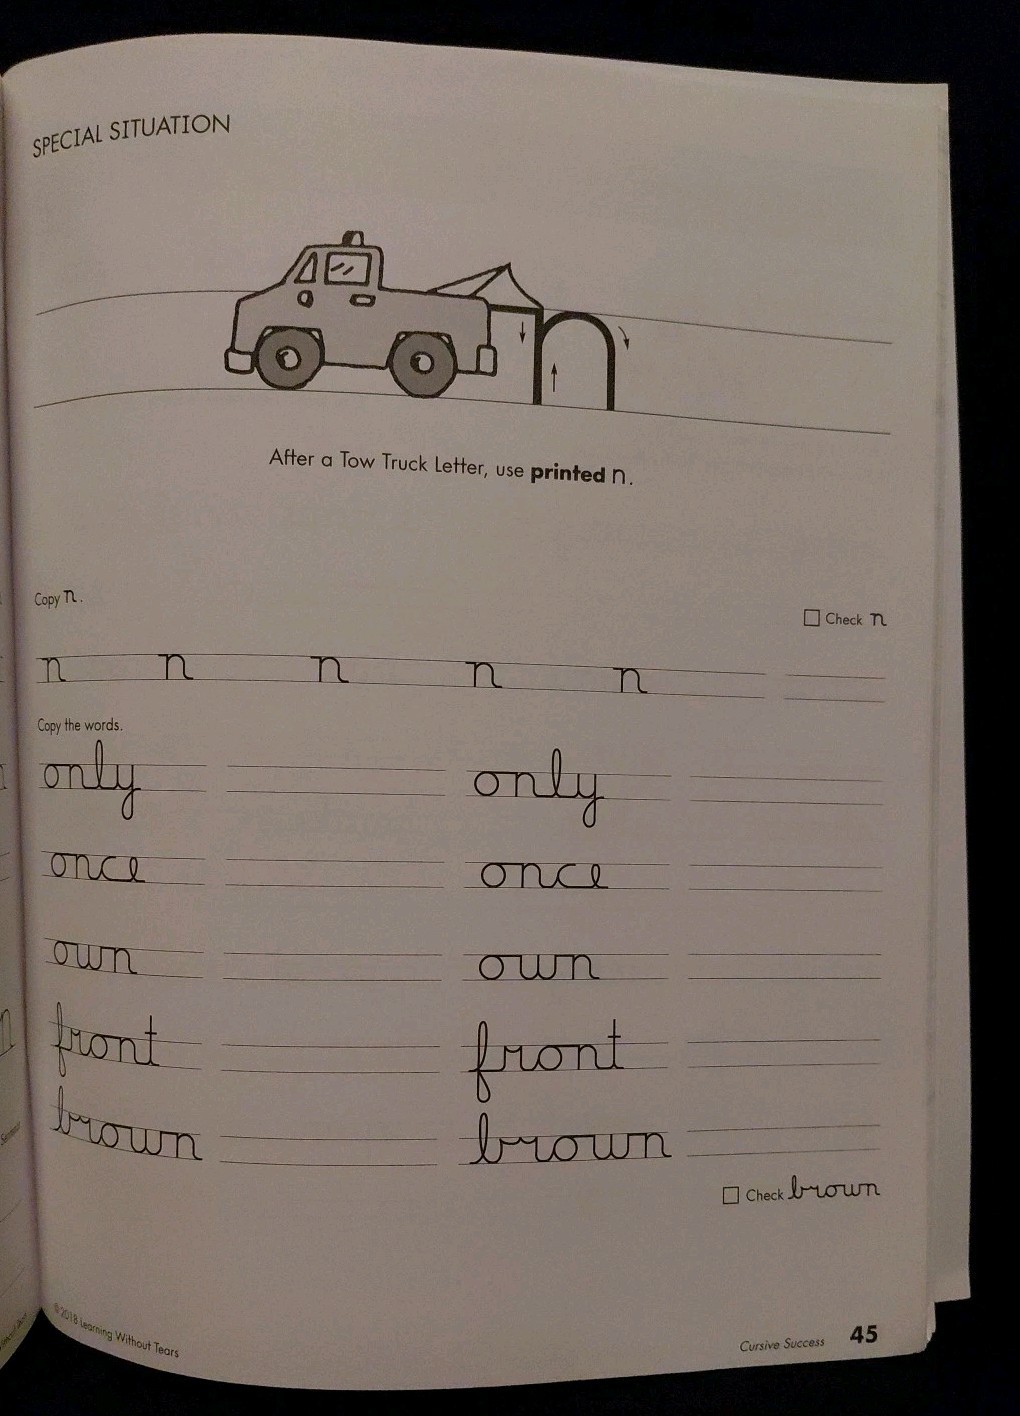 SPECIAL SITUATION
After a Tow Truck Letter, use printed n.
Copy n.
Check n
n n n n n
Copy the words.
only only
once once
own own
front front
brown brown
Check brown
©2018 Learning Without Tears
Cursive Success 45